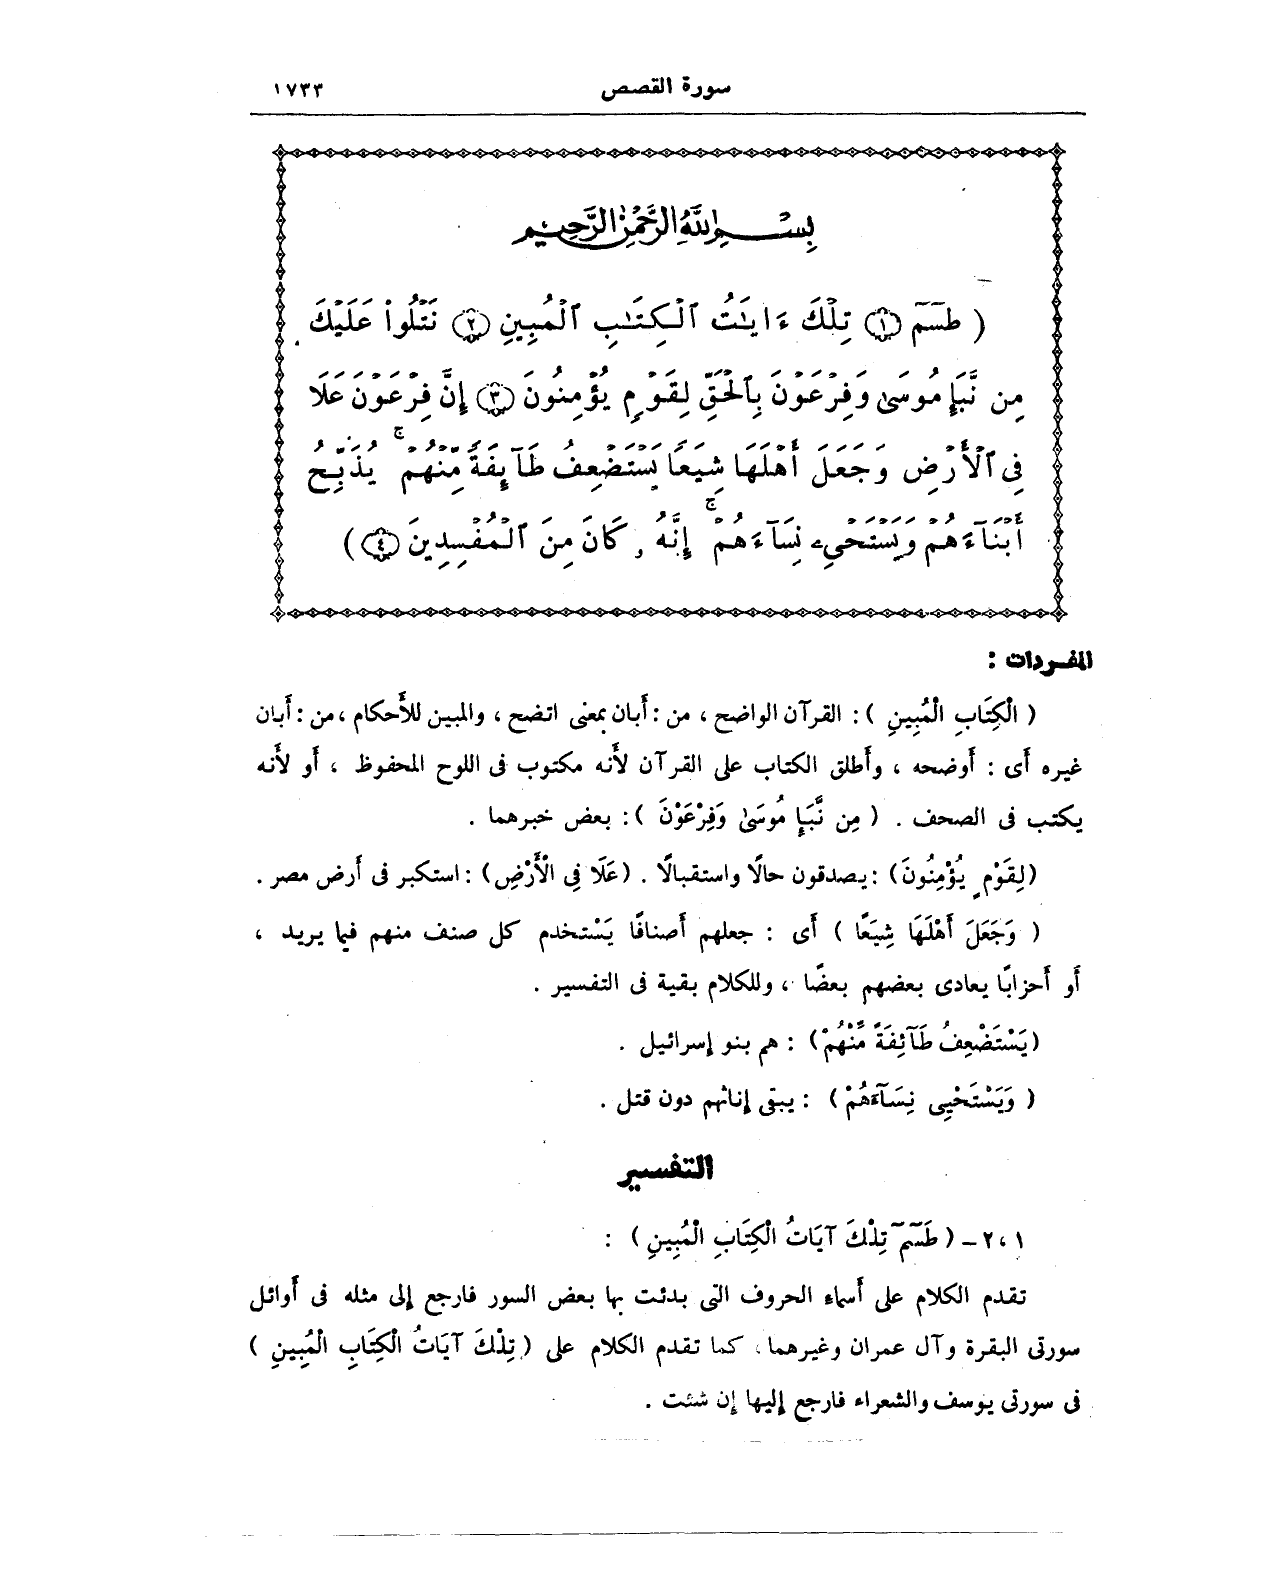 سورة القصص ١٧٣٣
بِسْمِ اللَّهِ الرَّحْمَٰنِ الرَّحِيمِ
( طسٓمٓ ۝١ تِلْكَ ءَايَٰتُ ٱلْكِتَٰبِ ٱلْمُبِينِ ۝٢ نَتْلُوا۟ عَلَيْكَ
مِن نَّبَإِ مُوسَىٰ وَفِرْعَوْنَ بِٱلْحَقِّ لِقَوْمٍ يُؤْمِنُونَ ۝٣ إِنَّ فِرْعَوْنَ عَلَا
فِى ٱلْأَرْضِ وَجَعَلَ أَهْلَهَا شِيَعًا يَسْتَضْعِفُ طَآئِفَةً مِّنْهُمْ ۚ يُذَبِّحُ
أَبْنَآءَهُمْ وَيَسْتَحْىِۦ نِسَآءَهُمْ ۚ إِنَّهُۥ كَانَ مِنَ ٱلْمُفْسِدِينَ ۝٤ )
المفردات :
( الْكِتَابِ الْمُبِينِ ) : القرآن الواضح ، من : أَبان بمعنى اتضح ، والمبين للأَحكام ، من : أَبان
غيره أَى : أَوضحه ، وأَطلق الكتاب على القرآن لأَنه مكتوب فى اللوح المحفوظ ، أَو لأَنه
يكتب فى الصحف . ( مِن نَّبَإِ مُوسَىٰ وَفِرْعَوْنَ ) : بعض خبرهما .
(لِقَوْمٍ يُؤْمِنُونَ) : يصدقون حالًا واستقبالًا . (عَلَا فِى الْأَرْضِ) : استكبر فى أَرض مصر .
( وَجَعَلَ أَهْلَهَا شِيَعًا ) أَى : جعلهم أَصنافًا يَسْتخدم كل صنف منهم فيما يريد ،
أَو أَحزابًا يعادى بعضهم بعضًا ، وللكلام بقية فى التفسير .
(يَسْتَضْعِفُ طَآئِفَةً مِّنْهُمْ) : هم بنو إسرائيل .
( وَيَسْتَحْيِى نِسَآءَهُمْ ) : يبقى إناثهم دون قتل .
التفسير
١ ، ٢ – ( طَسٓمٓ تِلْكَ آيَاتُ الْكِتَابِ الْمُبِينِ ) :
تقدم الكلام على أَسماء الحروف التى بدئت بها بعض السور فارجع إلى مثله فى أَوائل
سورتى البقرة وآل عمران وغيرهما ، كما تقدم الكلام على ( تِلْكَ آيَاتُ الْكِتَابِ الْمُبِينِ )
فى سورتى يوسف والشعراء فارجع إليها إن شئت .